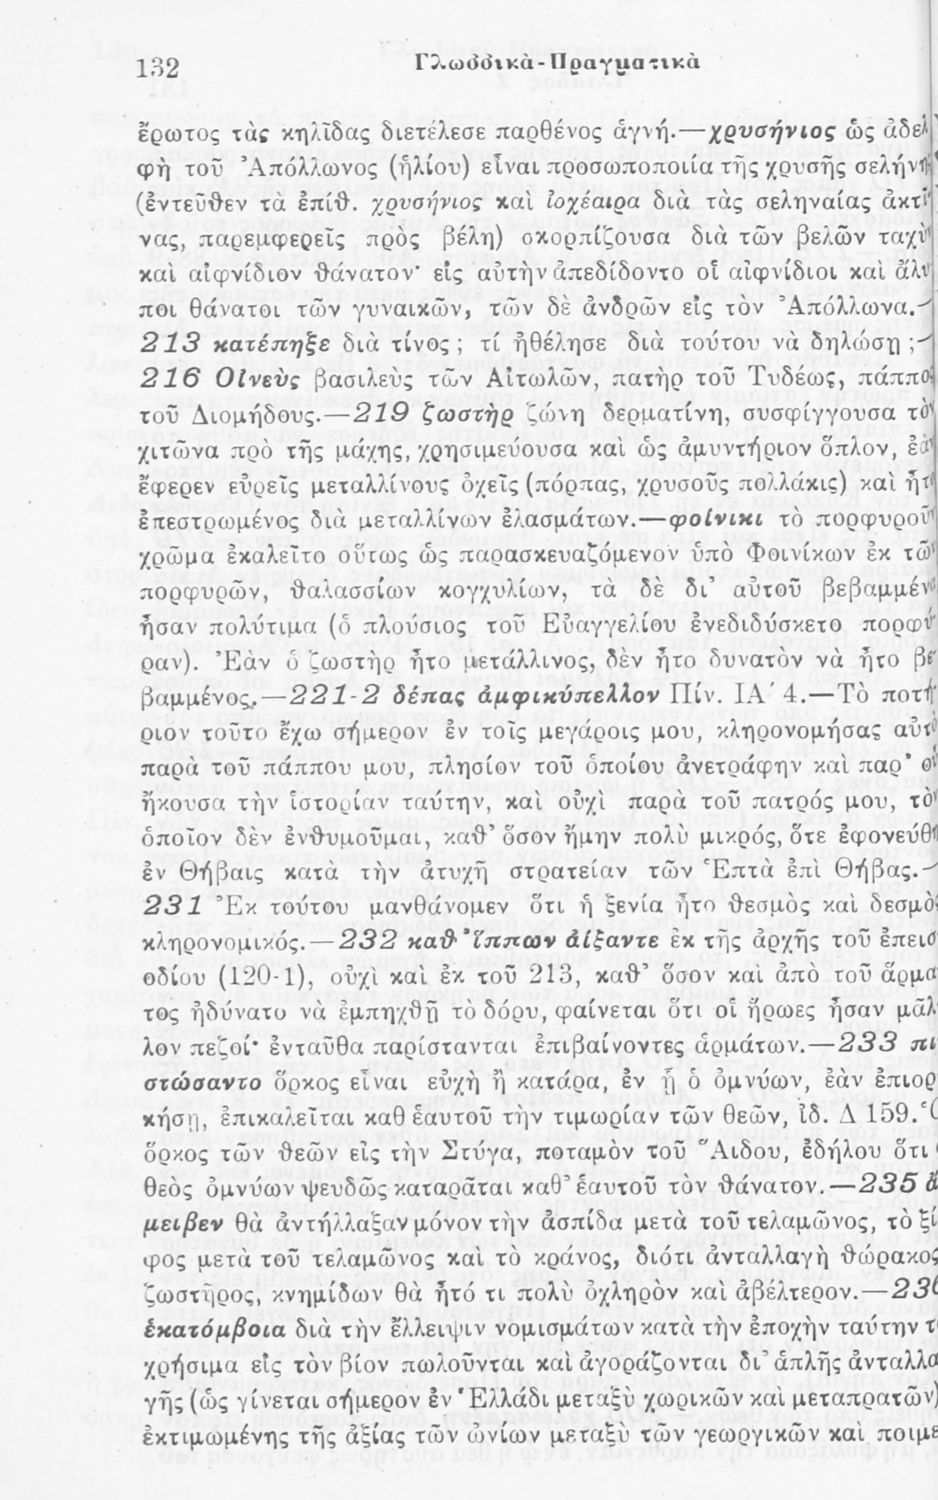 132
Γλωσσικὰ-Πραγματικὰ
ἔρωτος τὰς κηλῖδας διετέλεσε παρθένος ἁγνή.—χρυσήνιος ὡς ἀδελ
φὴ τοῦ Ἀπόλλωνος (ἡλίου) εἶναι προσωποποιία τῆς χρυσῆς σελήνη
(ἐντεῦθεν τὰ ἐπίθ. χρυσήνιος καὶ ἰοχέαιρα διὰ τὰς σεληναίας ἀκτῖ
νας, παρεμφερεῖς πρὸς βέλη) σκορπίζουσα διὰ τῶν βελῶν ταχὺ
καὶ αἰφνίδιον θάνατον· εἰς αὐτὴν ἀπεδίδοντο οἱ αἰφνίδιοι καὶ ἄλυ
ποι θάνατοι τῶν γυναικῶν, τῶν δὲ ἀνδρῶν εἰς τὸν Ἀπόλλωνα.—
213 κατέπηξε διὰ τίνος; τί ἠθέλησε διὰ τούτου νὰ δηλώσῃ;—
216 Οἰνεὺς βασιλεὺς τῶν Αἰτωλῶν, πατὴρ τοῦ Τυδέως, πάππο
τοῦ Διομήδους.—219 ζωστὴρ ζώνη δερματίνη, συσφίγγουσα τὸ
χιτῶνα πρὸ τῆς μάχης, χρησιμεύουσα καὶ ὡς ἀμυντήριον ὅπλον, ἐὰ
ἔφερεν εὐρεῖς μεταλλίνους ὀχεῖς (πόρπας, χρυσοῦς πολλάκις) καὶ ἦτ
ἐπεστρωμένος διὰ μεταλλίνων ἐλασμάτων.—φοίνικι τὸ πορφυροῦ
χρῶμα ἐκαλεῖτο οὕτως ὡς παρασκευαζόμενον ὑπὸ Φοινίκων ἐκ τῶ
πορφυρῶν, θαλασσίων κογχυλίων, τὰ δὲ δι' αὐτοῦ βεβαμμέν
ἦσαν πολύτιμα (ὁ πλούσιος τοῦ Εὐαγγελίου ἐνεδιδύσκετο πορφύ
ραν). Ἐὰν ὁ ζωστὴρ ἦτο μετάλλινος, δὲν ἦτο δυνατὸν νὰ ἦτο βε
βαμμένος.—221-2 δέπας ἀμφικύπελλον Πίν. ΙΑ΄ 4.—Τὸ ποτή
ριον τοῦτο ἔχω σήμερον ἐν τοῖς μεγάροις μου, κληρονομήσας αὐτ
παρὰ τοῦ πάππου μου, πλησίον τοῦ ὁποίου ἀνετράφην καὶ παρ' ο
ἤκουσα τὴν ἱστορίαν ταύτην, καὶ οὐχὶ παρὰ τοῦ πατρός μου, τὸ
ὁποῖον δὲν ἐνθυμοῦμαι, καθ' ὅσον ἤμην πολὺ μικρός, ὅτε ἐφονεύθ
ἐν Θήβαις κατὰ τὴν ἀτυχῆ στρατείαν τῶν Ἑπτὰ ἐπὶ Θήβας.—
231 Ἐκ τούτου μανθάνομεν ὅτι ἡ ξενία ἦτο θεσμὸς καὶ δεσμὸ
κληρονομικός.—232 καθ' ἵππων ἀΐξαντε ἐκ τῆς ἀρχῆς τοῦ ἐπεισ
οδίου (120-1), οὐχὶ καὶ ἐκ τοῦ 213, καθ' ὅσον καὶ ἀπὸ τοῦ ἅρμα
τος ἠδύνατο νὰ ἐμπηχθῇ τὸ δόρυ, φαίνεται ὅτι οἱ ἥρωες ἦσαν μᾶλ
λον πεζοί· ἐνταῦθα παρίστανται ἐπιβαίνοντες ἁρμάτων.—233 πι
στώσαντο ὅρκος εἶναι εὐχὴ ἢ κατάρα, ἐν ᾗ ὁ ὀμνύων, ἐὰν ἐπιορ
κήσῃ, ἐπικαλεῖται καθ ἑαυτοῦ τὴν τιμωρίαν τῶν θεῶν, ἰδ. Δ 159. Ὁ
ὅρκος τῶν θεῶν εἰς τὴν Στύγα, ποταμὸν τοῦ Ἅιδου, ἐδήλου ὅτι
θεὸς ὀμνύων ψευδῶς καταρᾶται καθ' ἑαυτοῦ τὸν θάνατον.—235 ἄ
μειβεν θὰ ἀντήλλαξαν μόνον τὴν ἀσπίδα μετὰ τοῦ τελαμῶνος, τὸ ξί
φος μετὰ τοῦ τελαμῶνος καὶ τὸ κράνος, διότι ἀνταλλαγὴ θώρακος
ζωστῆρος, κνημίδων θὰ ἦτό τι πολὺ ὀχληρὸν καὶ ἀβέλτερον.—236
ἑκατόμβοια διὰ τὴν ἔλλειψιν νομισμάτων κατὰ τὴν ἐποχὴν ταύτην τ
χρήσιμα εἰς τὸν βίον πωλοῦνται καὶ ἀγοράζονται δι' ἁπλῆς ἀνταλλα
γῆς (ὡς γίνεται σήμερον ἐν Ἑλλάδι μεταξὺ χωρικῶν καὶ μεταπρατῶν)
ἐκτιμωμένης τῆς ἀξίας τῶν ὠνίων μεταξὺ τῶν γεωργικῶν καὶ ποιμε